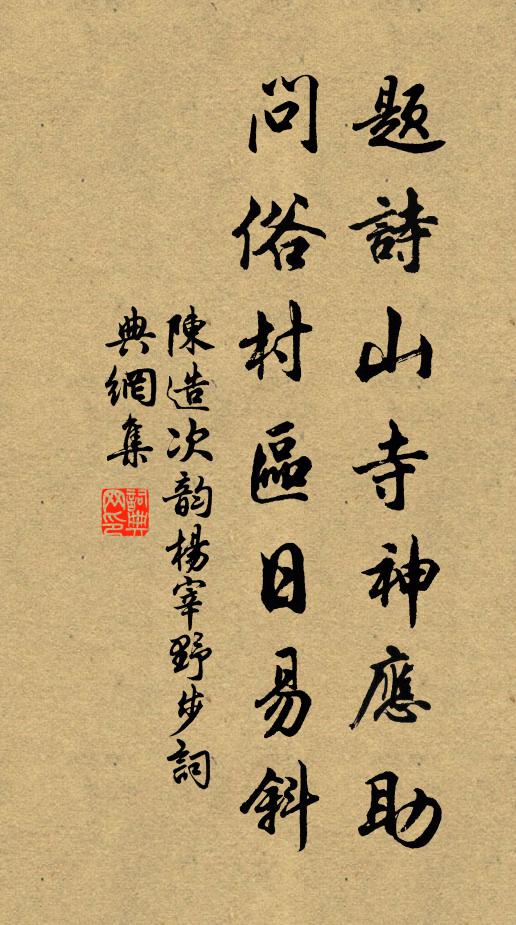 題詩山寺神應助
問俗村區日易斜
陳造次韵楊宰野步詞
典網集
詞典
网印